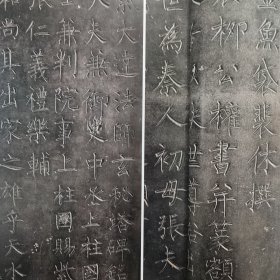 魚袋裴休撰
柳公權書并篆額
世為秦人初母張夫
大達法師玄秘塔碑銘
大夫兼御史中丞上柱國
兼判院事上柱國賜紫
張仁義禮樂輔
和尚其出家之雄乎天水